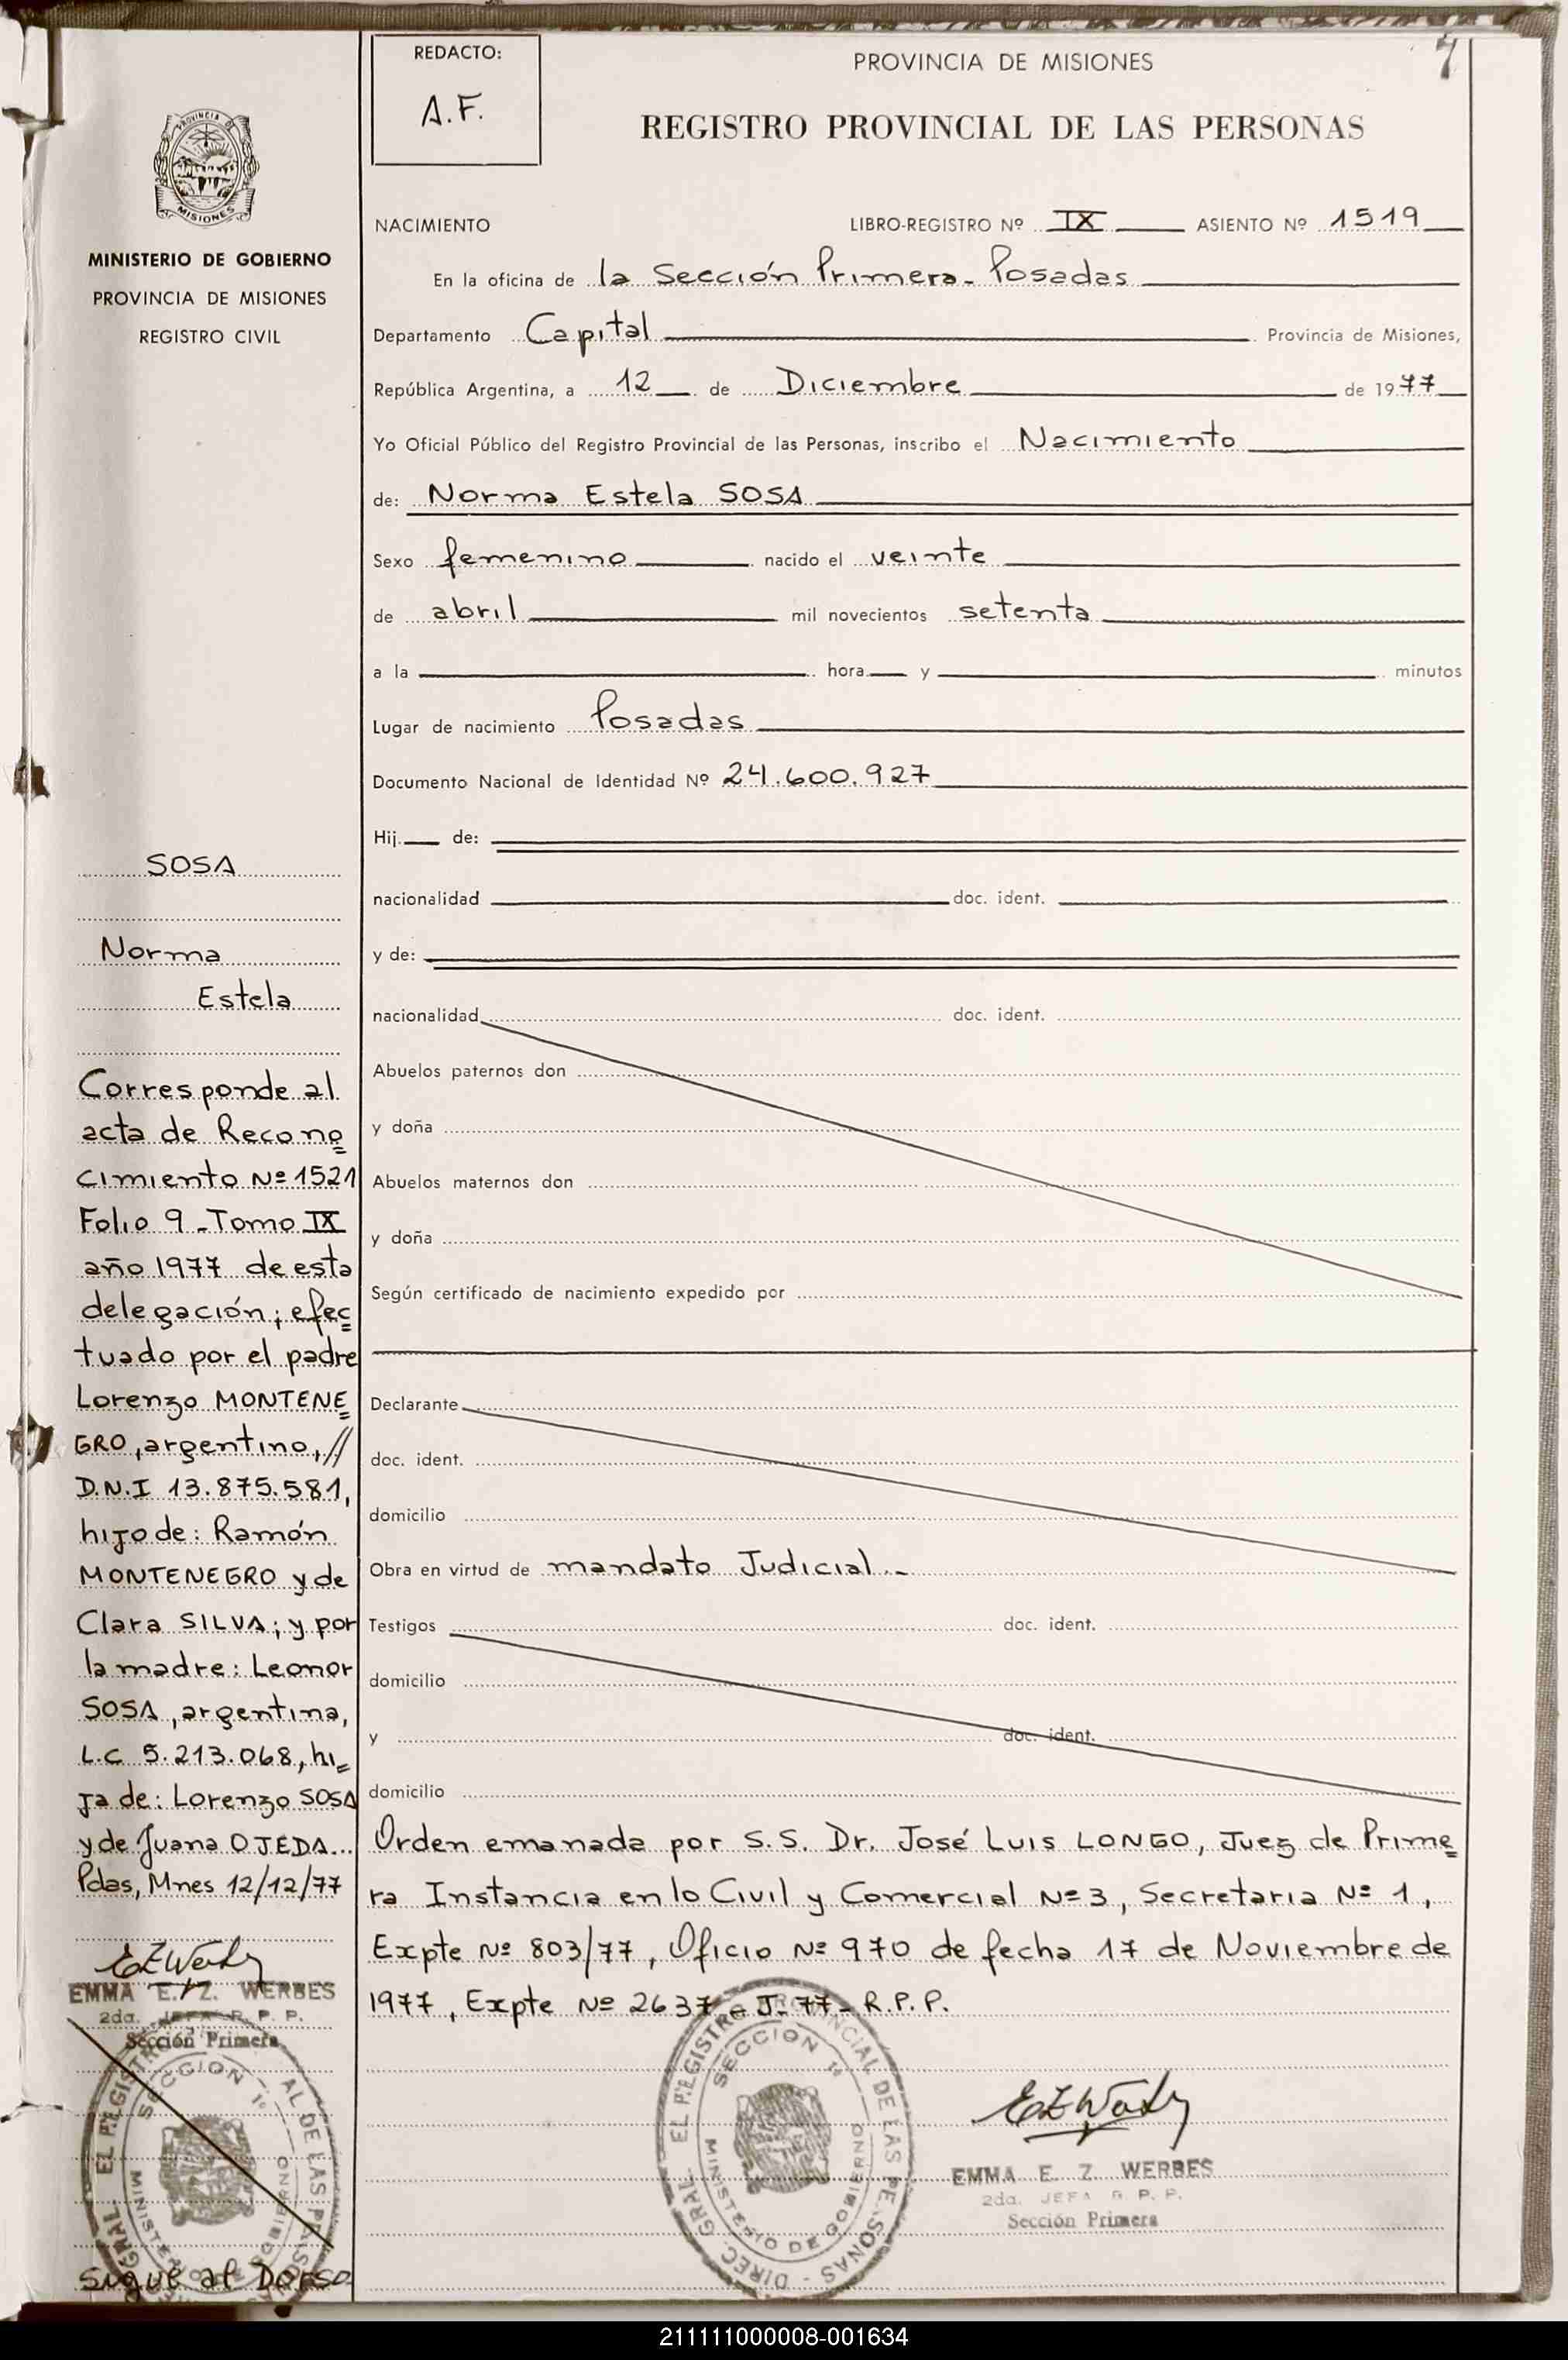 REDACTO:
A.F.
PROVINCIA DE MISIONES
7
REGISTRO PROVINCIAL DE LAS PERSONAS
PROVINCIA DE
MISIONES
MINISTERIO DE GOBIERNO
PROVINCIA DE MISIONES
REGISTRO CIVIL
NACIMIENTO LIBRO-REGISTRO Nº IX ASIENTO Nº 1519
En la oficina de la Sección Primera - Posadas
Departamento Capital Provincia de Misiones,
República Argentina, a 12 de Diciembre de 1977
Yo Oficial Público del Registro Provincial de las Personas, inscribo el Nacimiento
de: Norma Estela SOSA
Sexo femenino nacido el veinte
de abril mil novecientos setenta
a la hora y minutos
Lugar de nacimiento Posadas
Documento Nacional de Identidad Nº 24.600.927
Hij de:
nacionalidad doc. ident.
y de:
nacionalidad doc. ident.
Abuelos paternos don
y doña
Abuelos maternos don
y doña
Según certificado de nacimiento expedido por
Declarante
doc. ident.
domicilio
Obra en virtud de mandato Judicial.-
Testigos doc. ident.
domicilio
y doc. ident.
domicilio
Orden emanada por S.S. Dr. José Luis LONGO, Juez de Prime=
ra Instancia en lo Civil y Comercial Nº 3, Secretaria Nº 1,
Expte Nº 803/77, Oficio Nº 970 de fecha 17 de Noviembre de
1977, Expte Nº 2637 - J- 77- R.P.P.
SECCION 1º
MINISTERIO DE GOBIERNO
EMMA E. Z. WERBES
2da. JEFA R. P. P.
Sección Primera
SOSA
Norma
Estela
Corresponde al
acta de Recono=
cimiento Nº 1521
Folio 9 - Tomo IX
año 1977 de esta
delegación; efec=
tuado por el padre
Lorenzo MONTENE=
GRO, argentino, //
D.N.I 13.875.581,
hijo de: Ramón
MONTENEGRO y de
Clara SILVA; y por
la madre: Leonor
SOSA, argentina,
L.C 5.213.068, hi=
ja de: Lorenzo SOSA
y de Juana OJEDA...
Pdas, Mnes 12/12/77
EMMA E. Z. WERBES
2da. JEFA R. P. P.
Sección Primera
SECCION 1º
MINISTERIO DE GOBIERNO
Sigue al Dorso
211111000008-001634